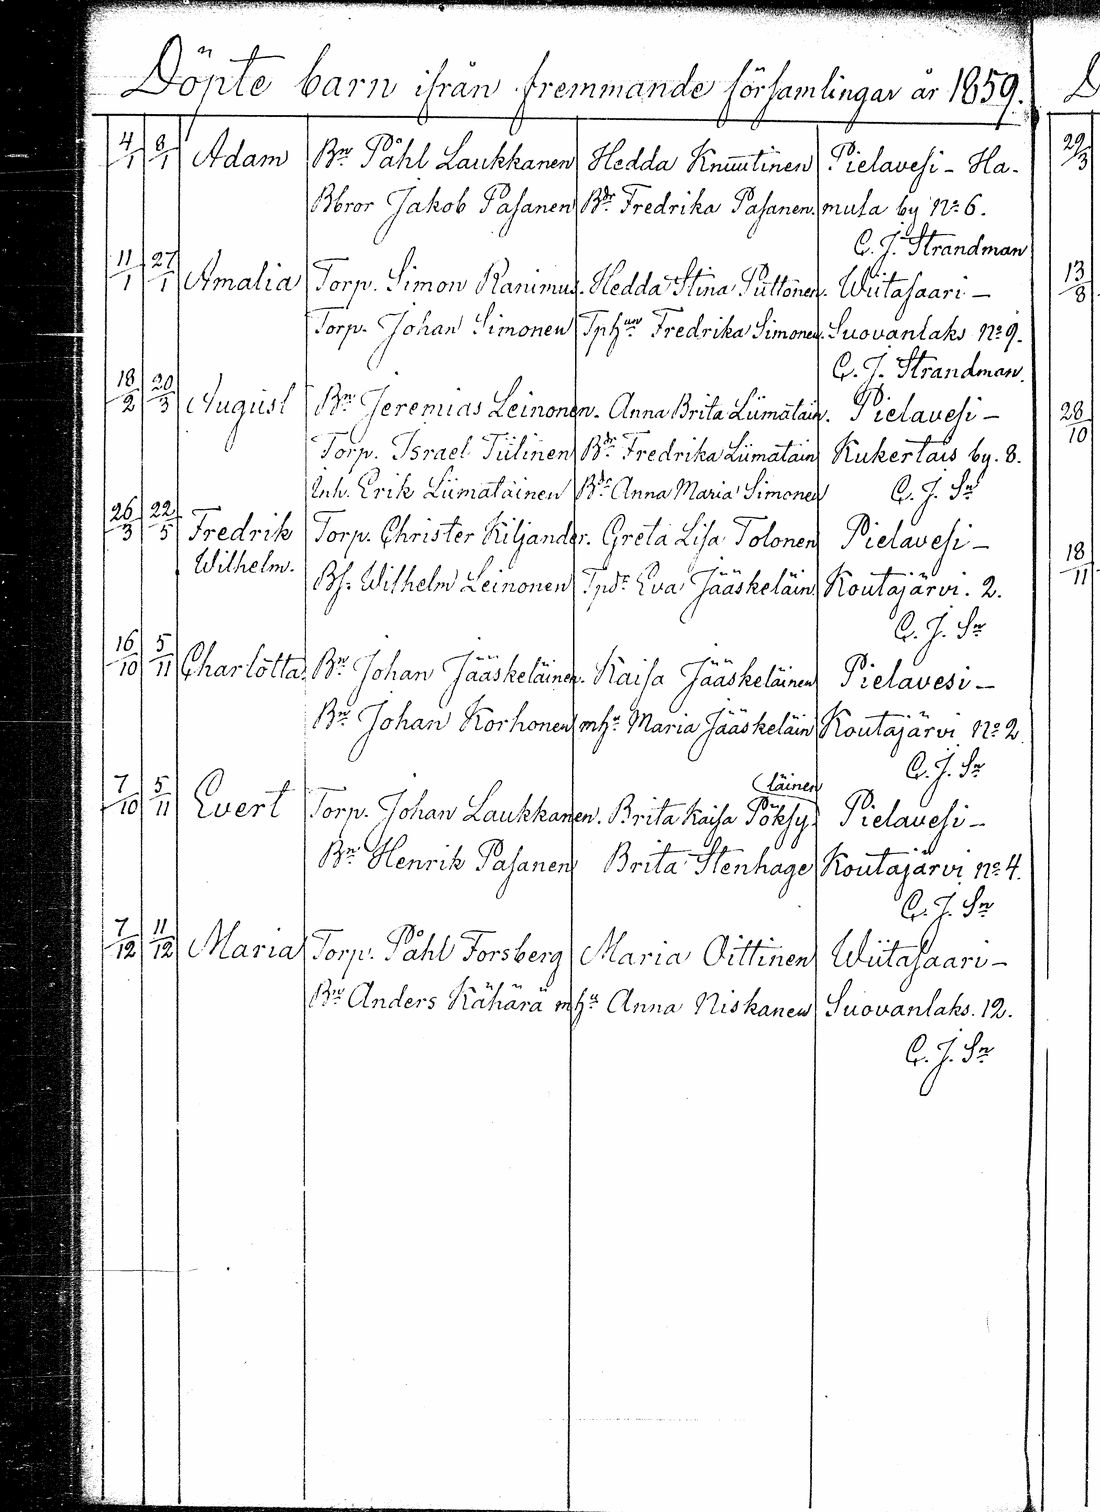 Döpte barn ifrån fremmande församlingar år 1859.
4/1 8/1 Adam Bn Påhl Laukkanen Hedda Knuutinen Pielavesi - Ha-
Bbror Jakob Pasanen Bdr Fredrika Pasanen. mula by No 6.
C. J. Strandman
11/1 27/1 Amalia Torp. Simon Ranimus. Hedda Stina Puttonen. Wiitasaari -
Torp. Johan Simonen Tphun Fredrika Simonen. Suovanlaks No 9.
C. J. Strandman.
18/2 20/3 August Bn Jeremias Leinonen. Anna Brita Liimatain. Pielavesi -
Torp. Israel Tiilinen Bdr Fredrika Liimatain Kukertais by. 8.
Inh. Erik Liimatäinen Bdr Anna Maria Simonen C. J. Sn
26/3 22/5 Fredrik Torp. Christer Kiljander. Greta Lisa Tolonen Pielavesi -
Wilhelm.
Bs. Wilhelm Leinonen Tpdr Eva Jääskeläin. Koutajärvi. 2.
C. J. Sn
16/10 5/11 Charlotta. Bn Johan Jääskeläinen. Kaisa Jääskeläinen Pielavesi -
Bn Johan Korhonen mhu Maria Jääskeläin Koutajärvi No 2
C. J. Sn
läinen
7/10 5/11 Evert Torp. Johan Laukkanen. Brita Kaisa Pöksy. Pielavesi -
Bn Henrik Pasanen Brita Stenhage Koutajärvi No 4.
C. J. Sn
7/12 11/12 Maria Torp. Påhl Forsberg Maria Oittinen Wiitasaari -
Bn Anders Kähärä mhu Anna Niskanen Suovanlaks. 12.
C. J. Sn
29/3
13/8
28/10
18/11